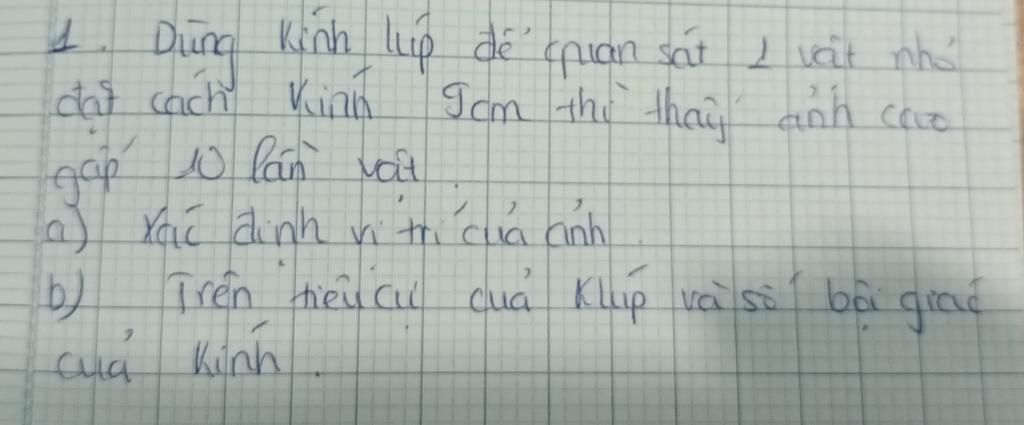 1. Dùng kính lúp để quan sát 1 vật nhỏ
đặt cách kính 9cm thì thấy ảnh cao
gấp 10 lần vật.
a) Xác định vị trí của ảnh.
b) Trên tiêu cự của Klúp và số bội giác
của kính.